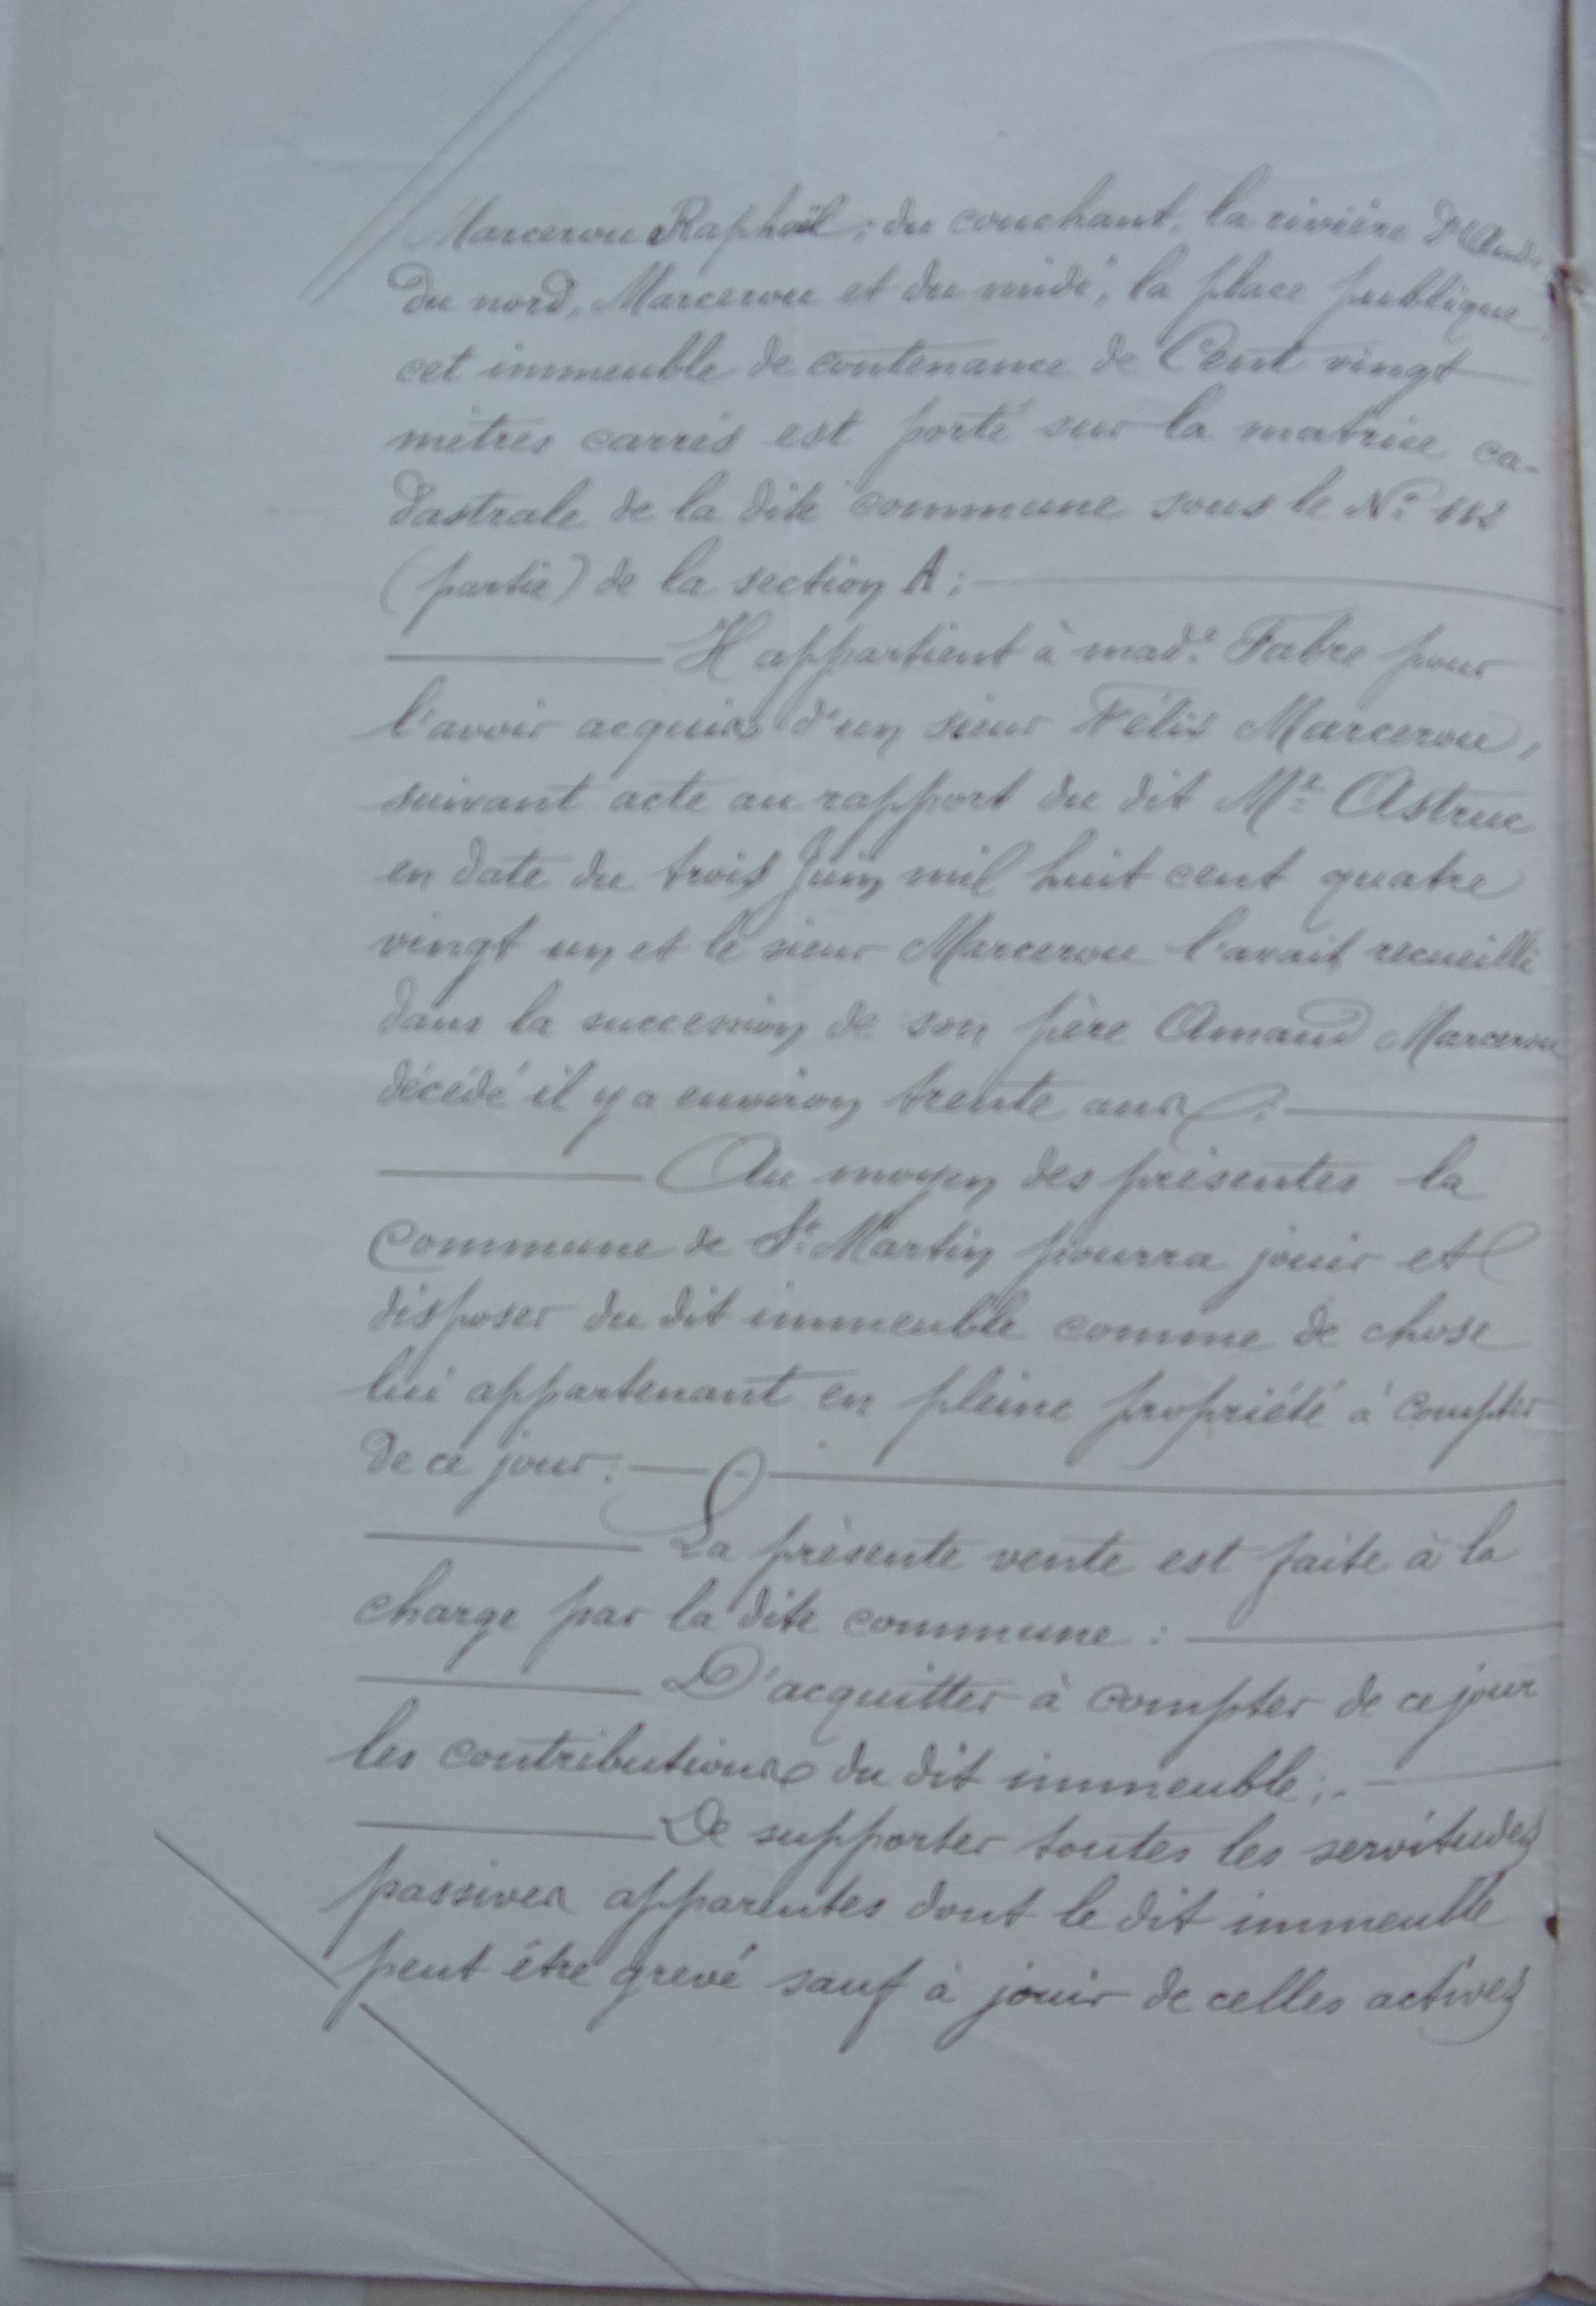 Marcerou Raphaël; du couchant, la rivière d'Aude
du nord, Marcerou et du midi, la place publique.
cet immeuble de contenance de Cent vingt
mètres carrés est porté sur la matrice ca-
dastrale de la dite commune sous le N° 112
(partie) de la section A;
Il appartient à mad.e Fabre pour
l'avoir acquis d'un sieur Félix Marcerou,
suivant acte au rapport du dit Me Astruc
en date du trois Juin mil huit cent quatre
vingt un et le sieur Marcerou l'avait recueilli
dans la succession de son père Amand Marcerou
décédé il y a environ trente ans.
Au moyen des présentes la
commune de St Martin pourra jouir et
disposer du dit immeuble comme de chose
lui appartenant en pleine propriété à compter
de ce jour.
La présente vente est faite à la
charge par la dite commune :
D'acquitter à compter de ce jour
les contributions du dit immeuble;
De supporter toutes les servitudes
passives apparentes dont le dit immeuble
peut être grevé sauf à jouir de celles actives